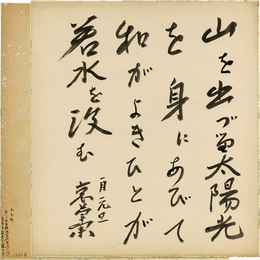 山を出づる太陽光
を身にあびて
和がよきひとが
若水を汲む
一月元旦